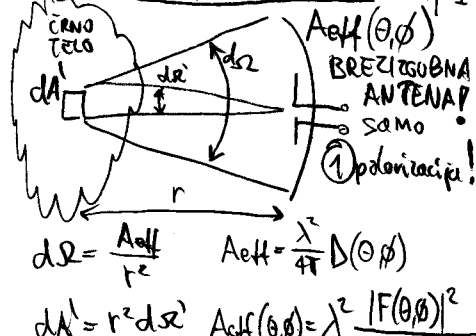 ČRNO
TELO
dA'
dΩ'
dΩ
Aeff(θ,ϕ)
BREZIZGUBNA
ANTENA!
SAMO
① polarizacija!
r
dΩ = Aeff / r²
Aeff = λ² / 4π D(θ,ϕ)
dA' = r² dΩ'
Aeff(θ,ϕ) = λ² |F(θ,ϕ)|²